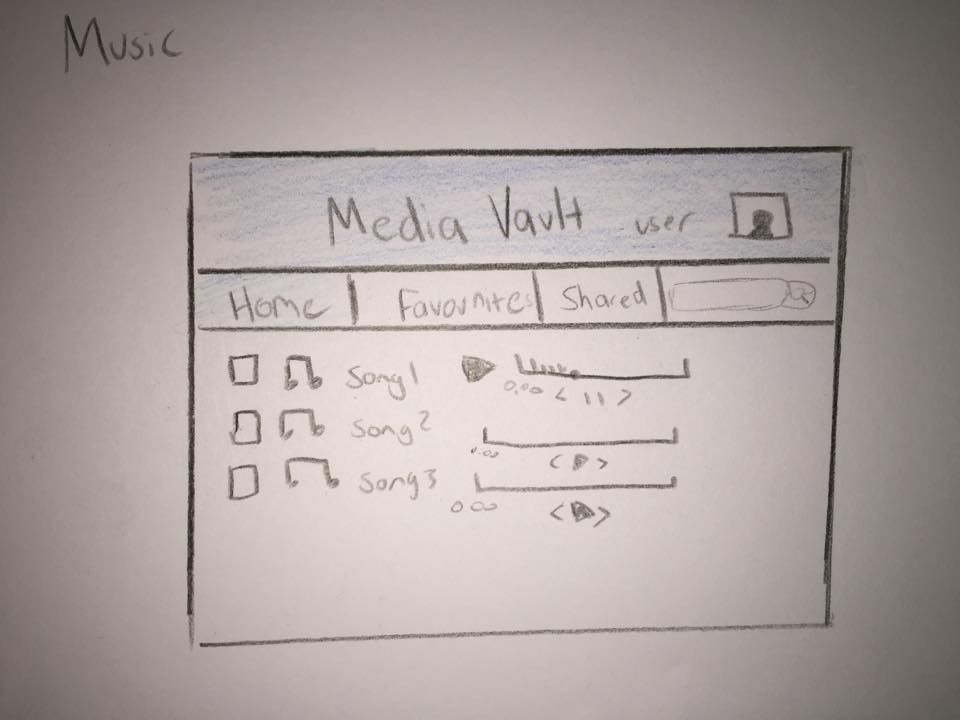 Music
Media Vault user
Home Favourites Shared
Song1
0.00 < || >
Song2
0.00
< >
Song3
0.00
< >